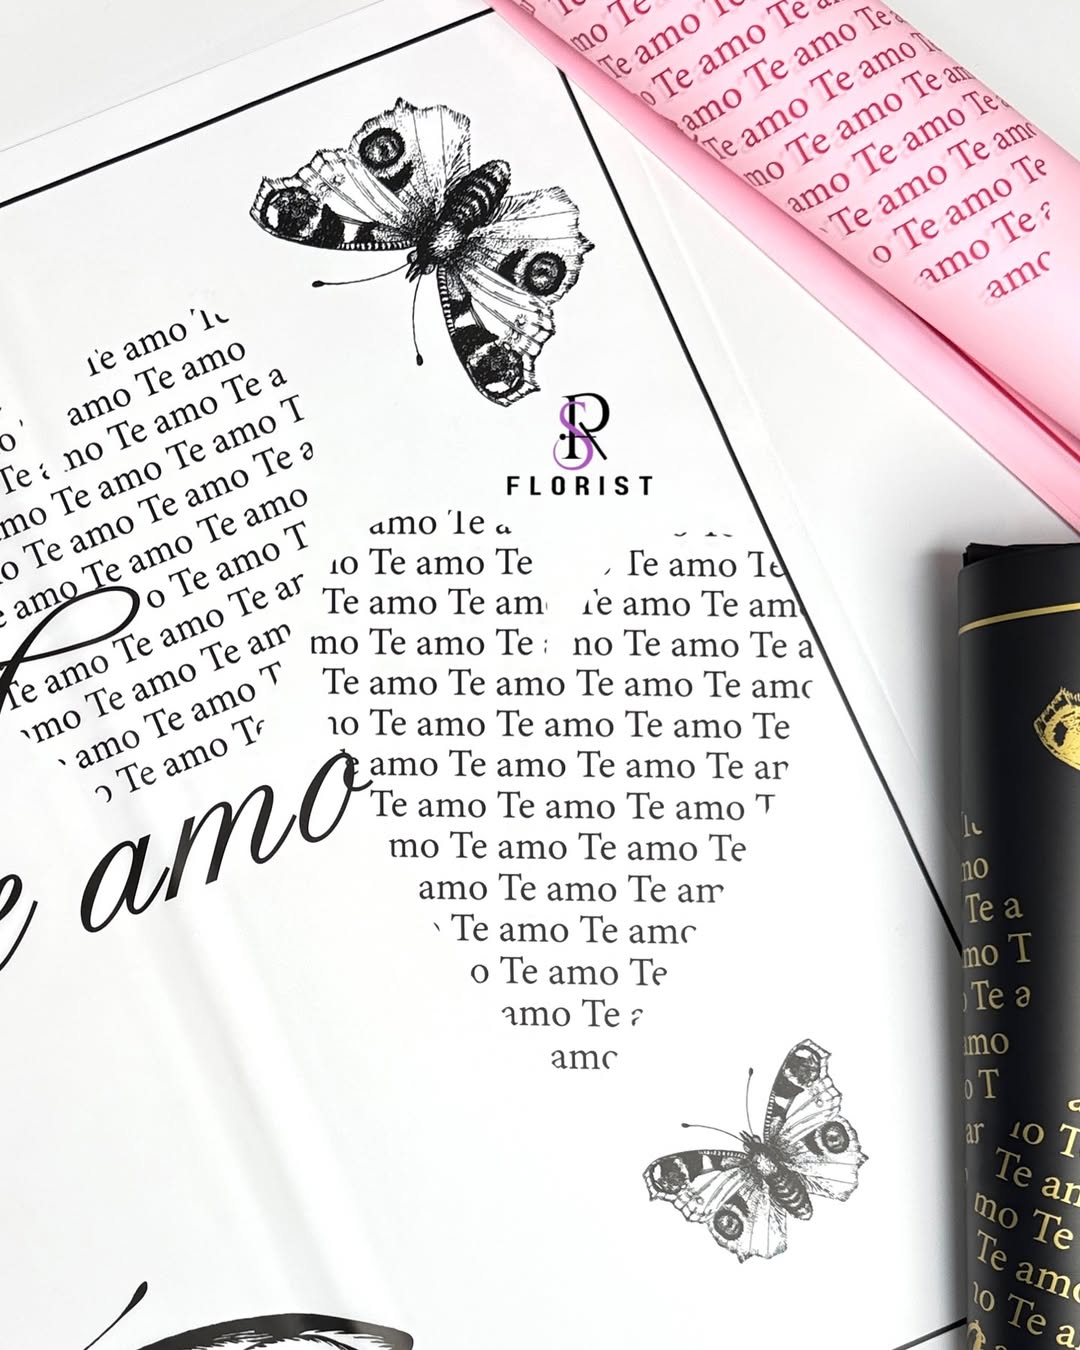 mo Te
Te amo Te amo Te a
Te amo Te amo Te amo
amo Te amo Te amo T
Te amo Te amo Te am
mo Te amo Te amo Te
amo Te amo Te a
Te amo Te amo
o Te amo Te
amo Te a
amo
Te amo Te
amo Te amo
no Te amo Te a
Te amo Te amo T
mo Te amo Te amo Te a
o Te amo Te amo Te amo
amo Te amo Te amo T
o Te amo Te ar
Te amo Te amo Te am
mo Te amo Te amo T
amo Te amo Te
o Te amo Te
e amo
SR
FLORIST
amo Te a
no Te amo Te
Te amo Te
Te amo Te am
Te amo Te am
mo Te amo Te
no Te amo Te a
Te amo Te amo Te amo Te amo
no Te amo Te amo Te amo Te
e amo Te amo Te amo Te ar
Te amo Te amo Te amo T
mo Te amo Te amo Te
amo Te amo Te am
Te amo Te amo
o Te amo Te
amo Te a
amo
no
Te a
mo T
Te a
mo
o T
ar
no T
Te am
mo Te
Te amo
no Te a